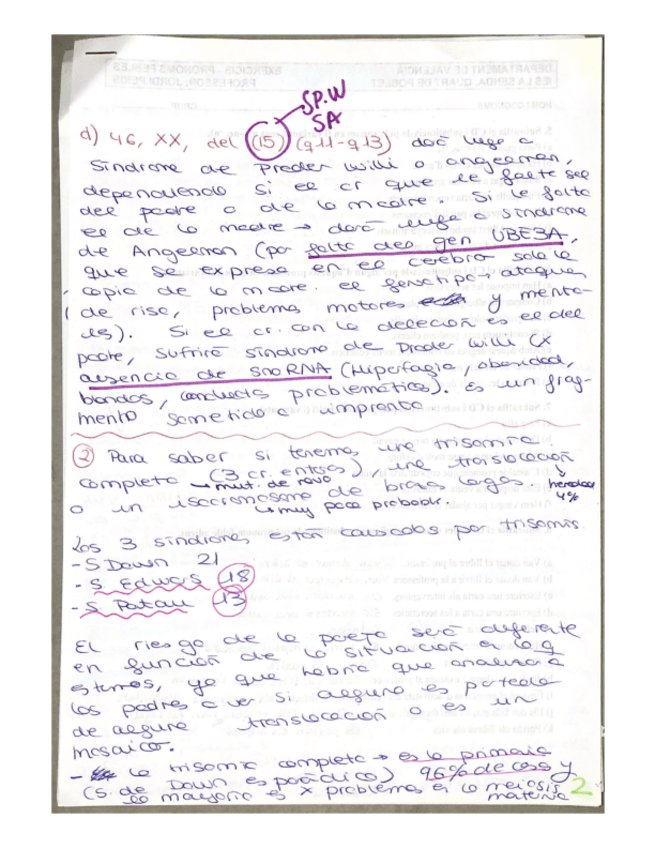 SP.W
SA
d) 46, XX, del (15) (q11-q13) dará lugar a
Síndrome de Prader Willi o angelman,
dependiendo si el cr que le falta sea
del padre o de la madre. Si le falta
el de la madre → dará lugar a síndrome
de Angelman (por falta del gen UBE3A,
que se expresa en el cerebro solo la
copia de la madre. el fenotipo → ataques
de risa, problemas motores y menta-
les). Si el cr. con la deleción es el del
padre, sufrirá síndrome de Prader Willi (x
ausencia de snoRNA (Hiperfagia, obesidad,
blandos, conducta problemática). es un frag-
mento sometido a impronta
② Para saber si tenemos una trisomía
completa (3 cr. enteros), una translocación
→ mut. de novo
heredada 4%
o un isocromosoma de brazos largos.
↳ muy poco probable.
Los 3 síndromes están causados por trisomía.
- S Down 21
- S. Edwars 18
- S. Patau 13
El riesgo de la pareja será diferente
en función de la situación en la q
estemos, ya que habría que analizar a
los padres a ver si alguno es portador
de alguna translocación o es un
mosaico.
- la trisomía completa → es la primaria
(S. de Down esporádico) 96% de casos y
la mayoría es x problemas en la meiosis
materna
2